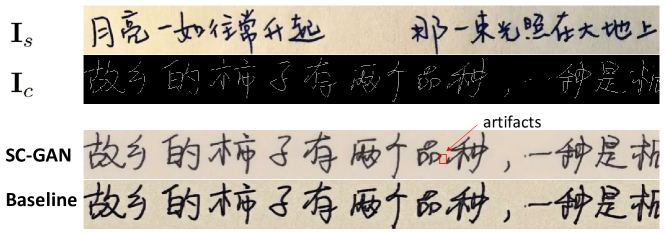 I_s 月亮一如往常升起 那一束光照在大地上
I_c 故乡的柿子有两个品种，一种是柘
artifacts
SC-GAN 故乡的柿子有两个品种，一种是柘
Baseline 故乡的柿子有两个品种，一种是柘